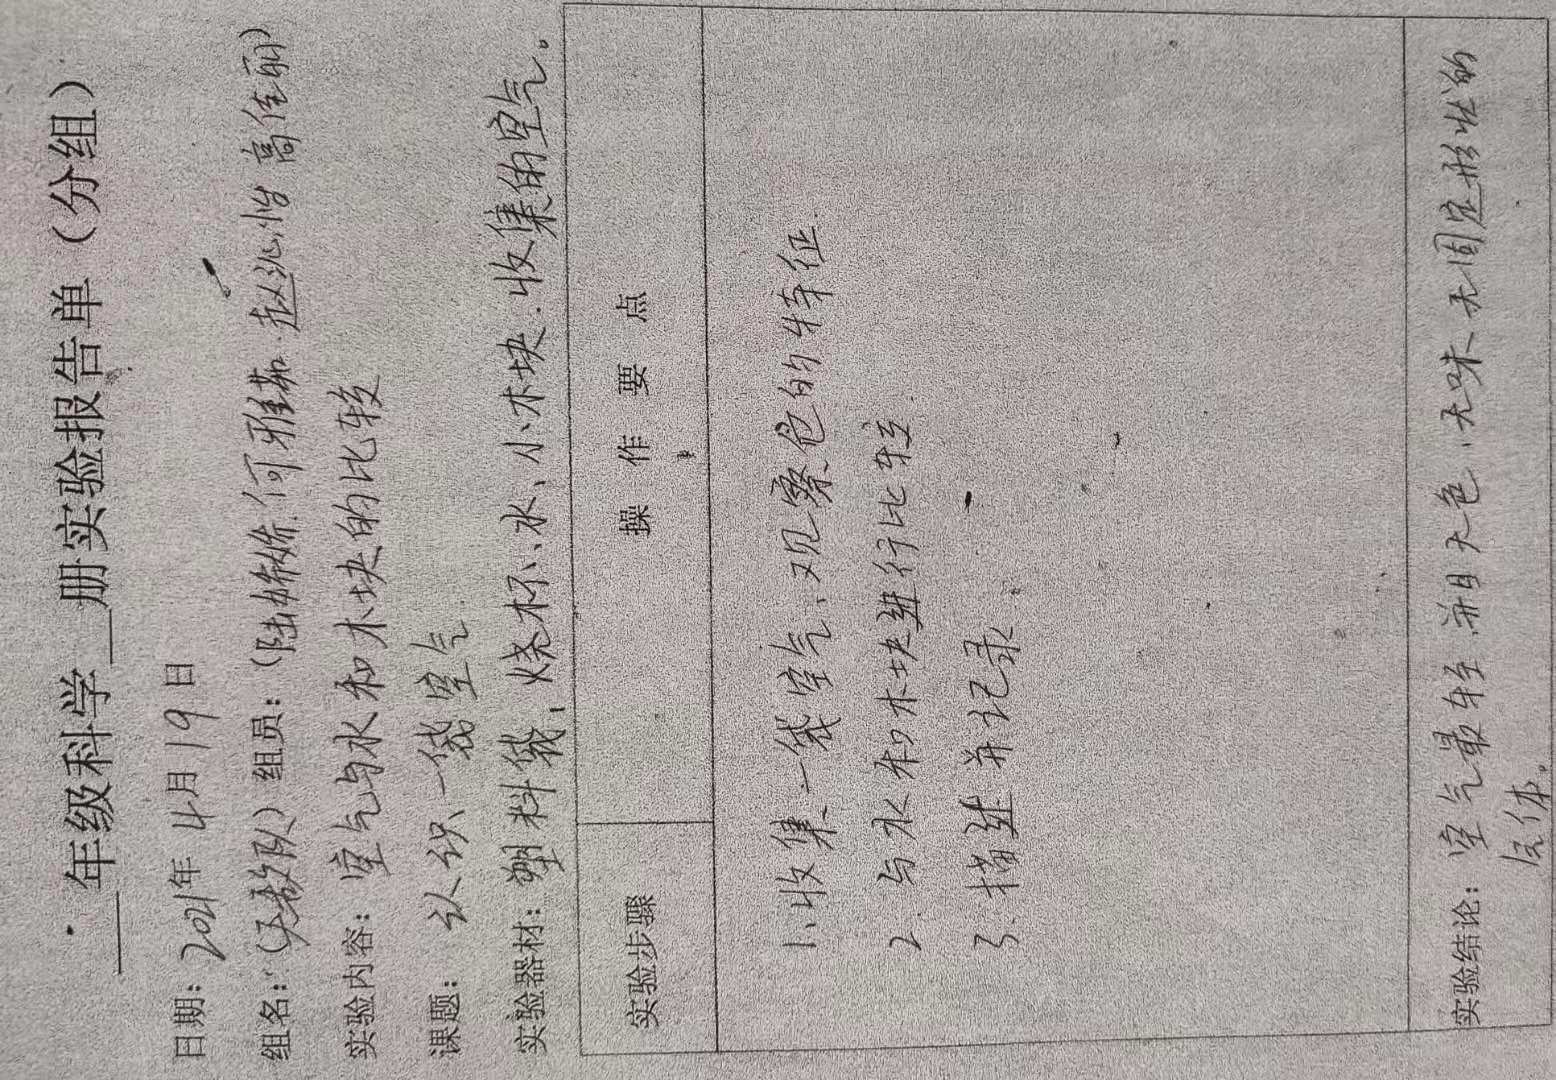 ___年级科学___册实验报告单（分组）
日期：2021年4月19日
组名：（无敌队）组员：（陆妍妍、何雅茹、赵沁怡 高佳丽）
实验内容：空气与水和木块的比较
课题：认识一袋空气
实验器材：塑料袋、烧杯、水、小木块、收集的空气。
实验步骤 操作要点
1、收集一袋空气、观察它的特征
2 与水和木块进行比较
3、描述并记录
实验结论：空气最轻，并且无色、无味、无固定形状的
气体。